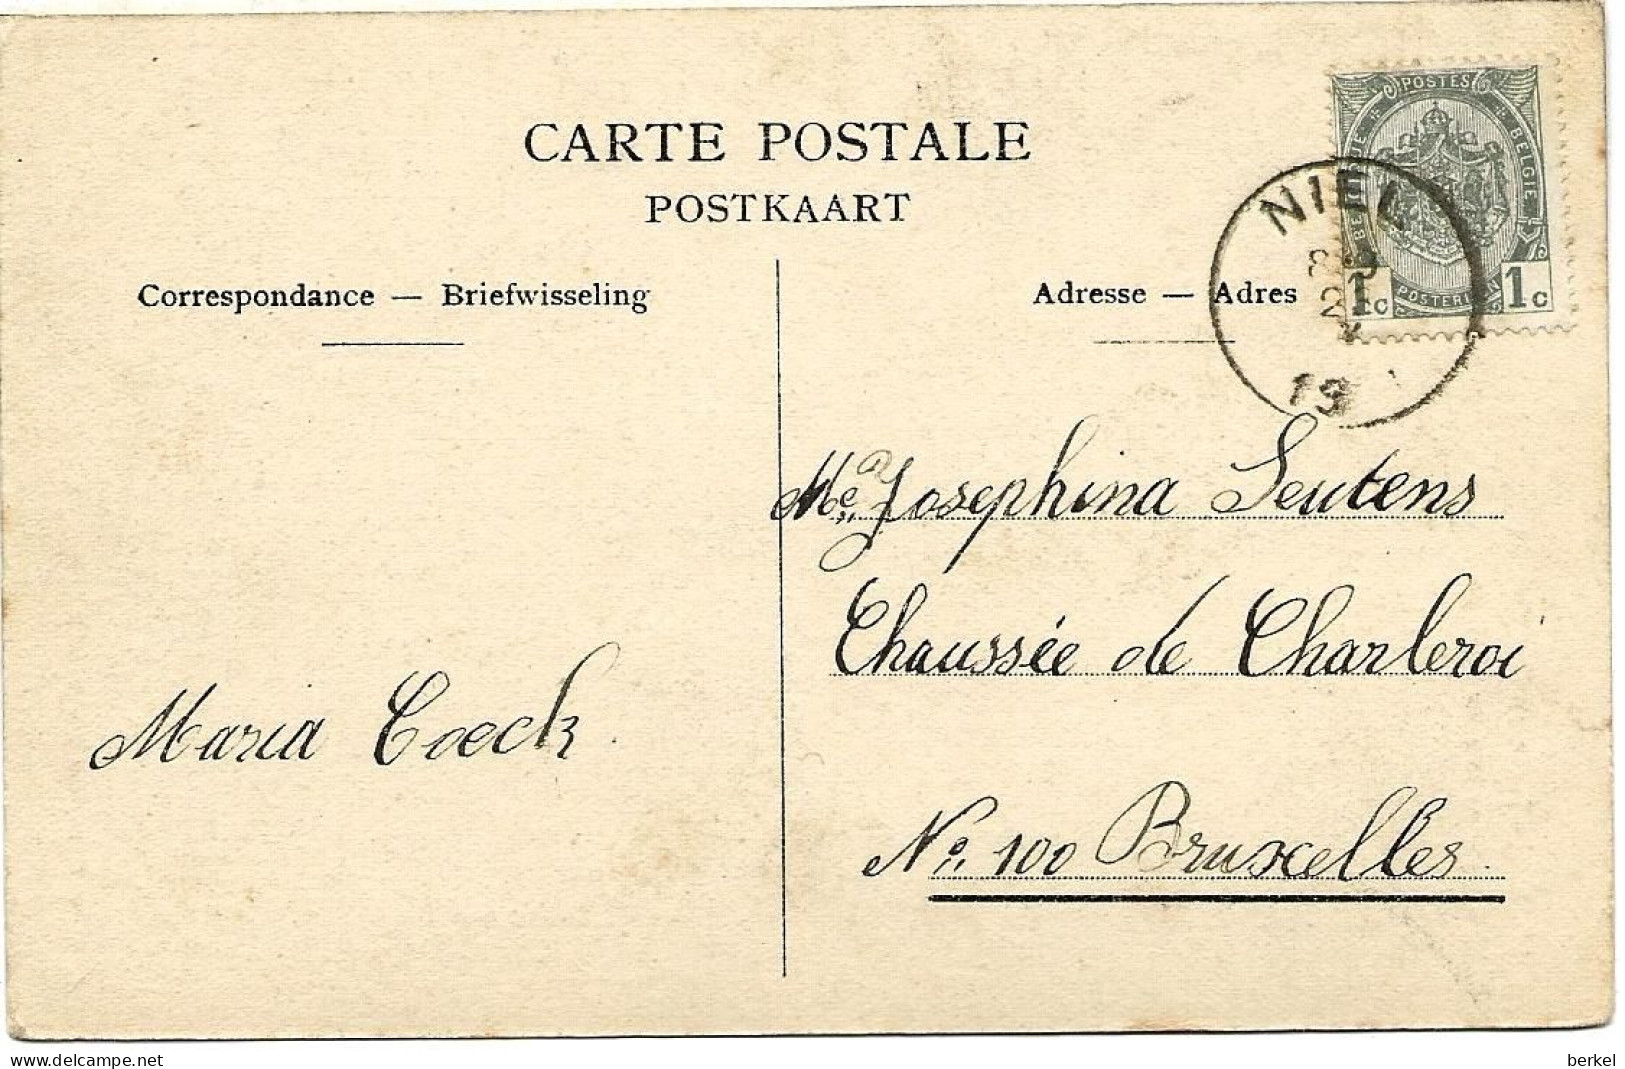 CARTE POSTALE
POSTKAART
Correspondance — Briefwisseling
Adresse — Adres
POSTES
BELGIE
1c 1c
NIEL
Josephina Seutens
Chaussée de Charleroi
No. 100 Bruxelles
Maria Coeck
www.delcampe.net
berkel